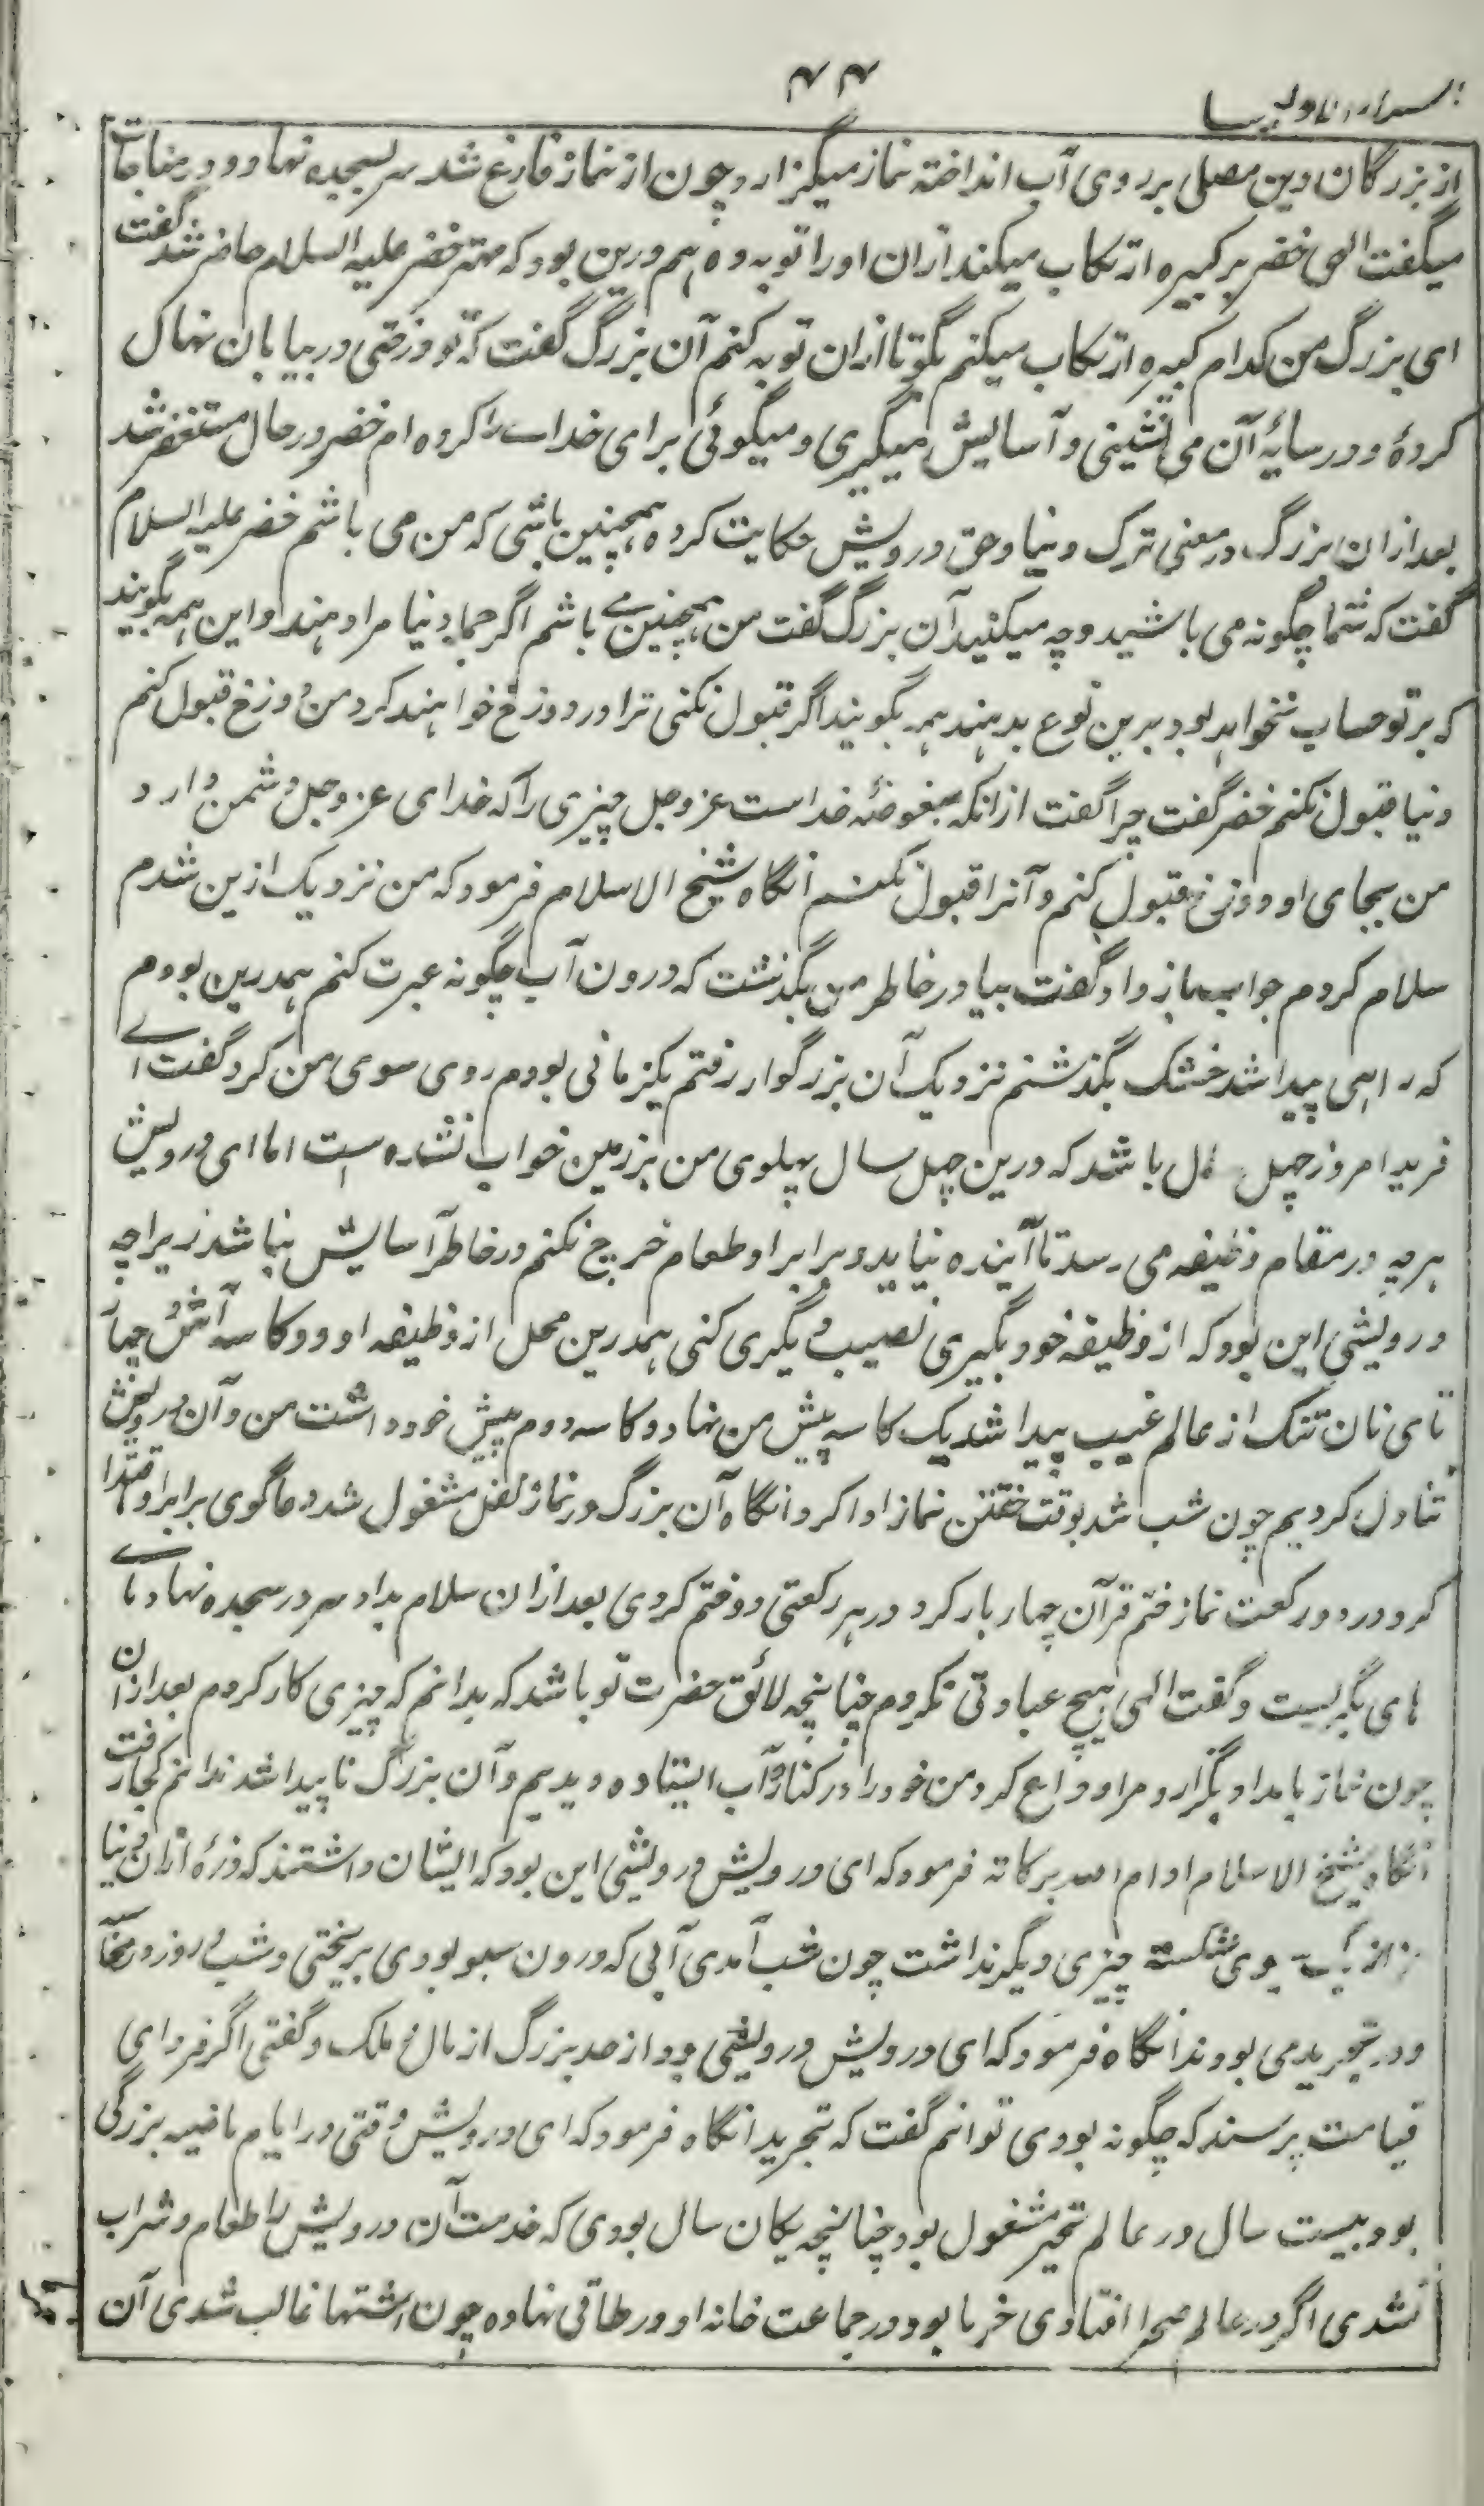 ۴۴
اسرار الاولیا
از بزرگان دین مصلی بر روی آب انداخته نماز میگزارد چون از نماز فارغ شد سر بسجده نهاد و در مناجات
میگفت الهی خضر بر کبیره ارتکاب میکند ازان او را توبه ده هم درین بود که مهتر خضر علیه السلام حاضر شد گفت
ای بزرگ من کدام کبیره ارتکاب میکنم بگو تا ازان توبه کنم آن بزرگ گفت که تو درختی در بیابان نهال
کردهٔ و در سایهٔ آن می نشینی و آسایش میگیری و میگوئی برای خداست را کرده ام خضر در حال مستغفر شد
بعد ازان بزرگ در معنی ترک دنیا و حق درویش حکایت کرد همچنین باشی که من می باشم خضر علیه السلام
گفت که شما چگونه می باشید و چه میکنید آن بزرگ گفت من همچنین می باشم اگر جمله دنیا مرا دهند و این همه بگویند
که بر تو حساب نخواهد بود بدین نوع بدهند هم بگویند اگر قبول نکنی ترا در دوزخ خواهند کرد من دوزخ قبول کنم
دنیا قبول نکنم خضر گفت چرا گفت از انکه مبغوضهٔ خداست عز و جل چیزی را که خدای عز و جل دشمن دارد
من بجای او دوزخ قبول کنم و آنرا قبول نکنم انگاه شیخ الاسلام فرمود که من نزدیک ازین شدم
سلام کردم جواب باز داد گفت بیا در خاطر من بگذشت که درون آب چگونه عبرت کنم همدرین بودم
که راهی پیدا شد خشک بگذشتم نزدیک آن بزرگوار رفتم یکزمانی بودم روی سوی من کرد گفت اے
فرید امروز چهل سال باشد که درین چهل سال پهلوی من بر زمین خواب نشده است اما ای درویش
هر چه در مقام وظیفه می رسد تا آینده نیاید و برابر او طعام خرج نکنم در خاطر آسایش نباشد زیرا چه
درویشی این بود که از وظیفه خود بگیری نصیب دیگری کنی همدرین محل از وظیفه او دو کاسه آش و چهار
تای نان تنک از عالم غیب پیدا شد یک کاسه پیش من نهاد و کاسه دوم پیش خود داشت من و آن درویش
تناول کردیم چون شب شد بوقت خفتن نماز ادا کرد انگاه آن بزرگ در نماز نفل مشغول شد دعاگوی برابر او اقتدا
کرد در دو رکعت نماز ختم قرآن چهار بار کرد در هر رکعتی دو ختم کردی بعد ازان سلام بداد سر در سجده نهاد های
های بگریست و گفت الهی هیچ عبادتی نکردم چنانچه لائق حضرت تو باشد که بدانم که چیزی کار کردم بعد ازان
چون نماز بامداد بگزارد مرا وداع کرد من خود را در کنارهٔ آب ایستاده دیدم و آن بزرگ ناپیدا شد ندانم کجا رفت
انگاه شیخ الاسلام ادام الله برکاته فرمود که ای درویش درویشی این بود که ایشان داشتند که ذرهٔ ازان دنیا
سبوی شکسته چیزی دیگر نداشت چون شب آمدی آبی که درون سبو بودی بریختی و شب و روز در محاسبه
و در تجرید می بودند انگاه فرمود که ای درویش درویشی بود از صد بزرگ از مال ملک و گفتی اگر فردای
قیامت پرسند که چگونه بودی توانم گفت که تجرید انگاه فرمود که ای درویش وقتی در ایام ماضیه بزرگی
بود بیست سال در عالم تحیر مشغول بود چنانچه یکان سال بودی که خدمت آن درویش را طعام و شراب
نشدی اگر در عالم صحرا افتادی خرما بود در جماعت خانه او در طاقی نهاده چون اشتها غالب شدی آن